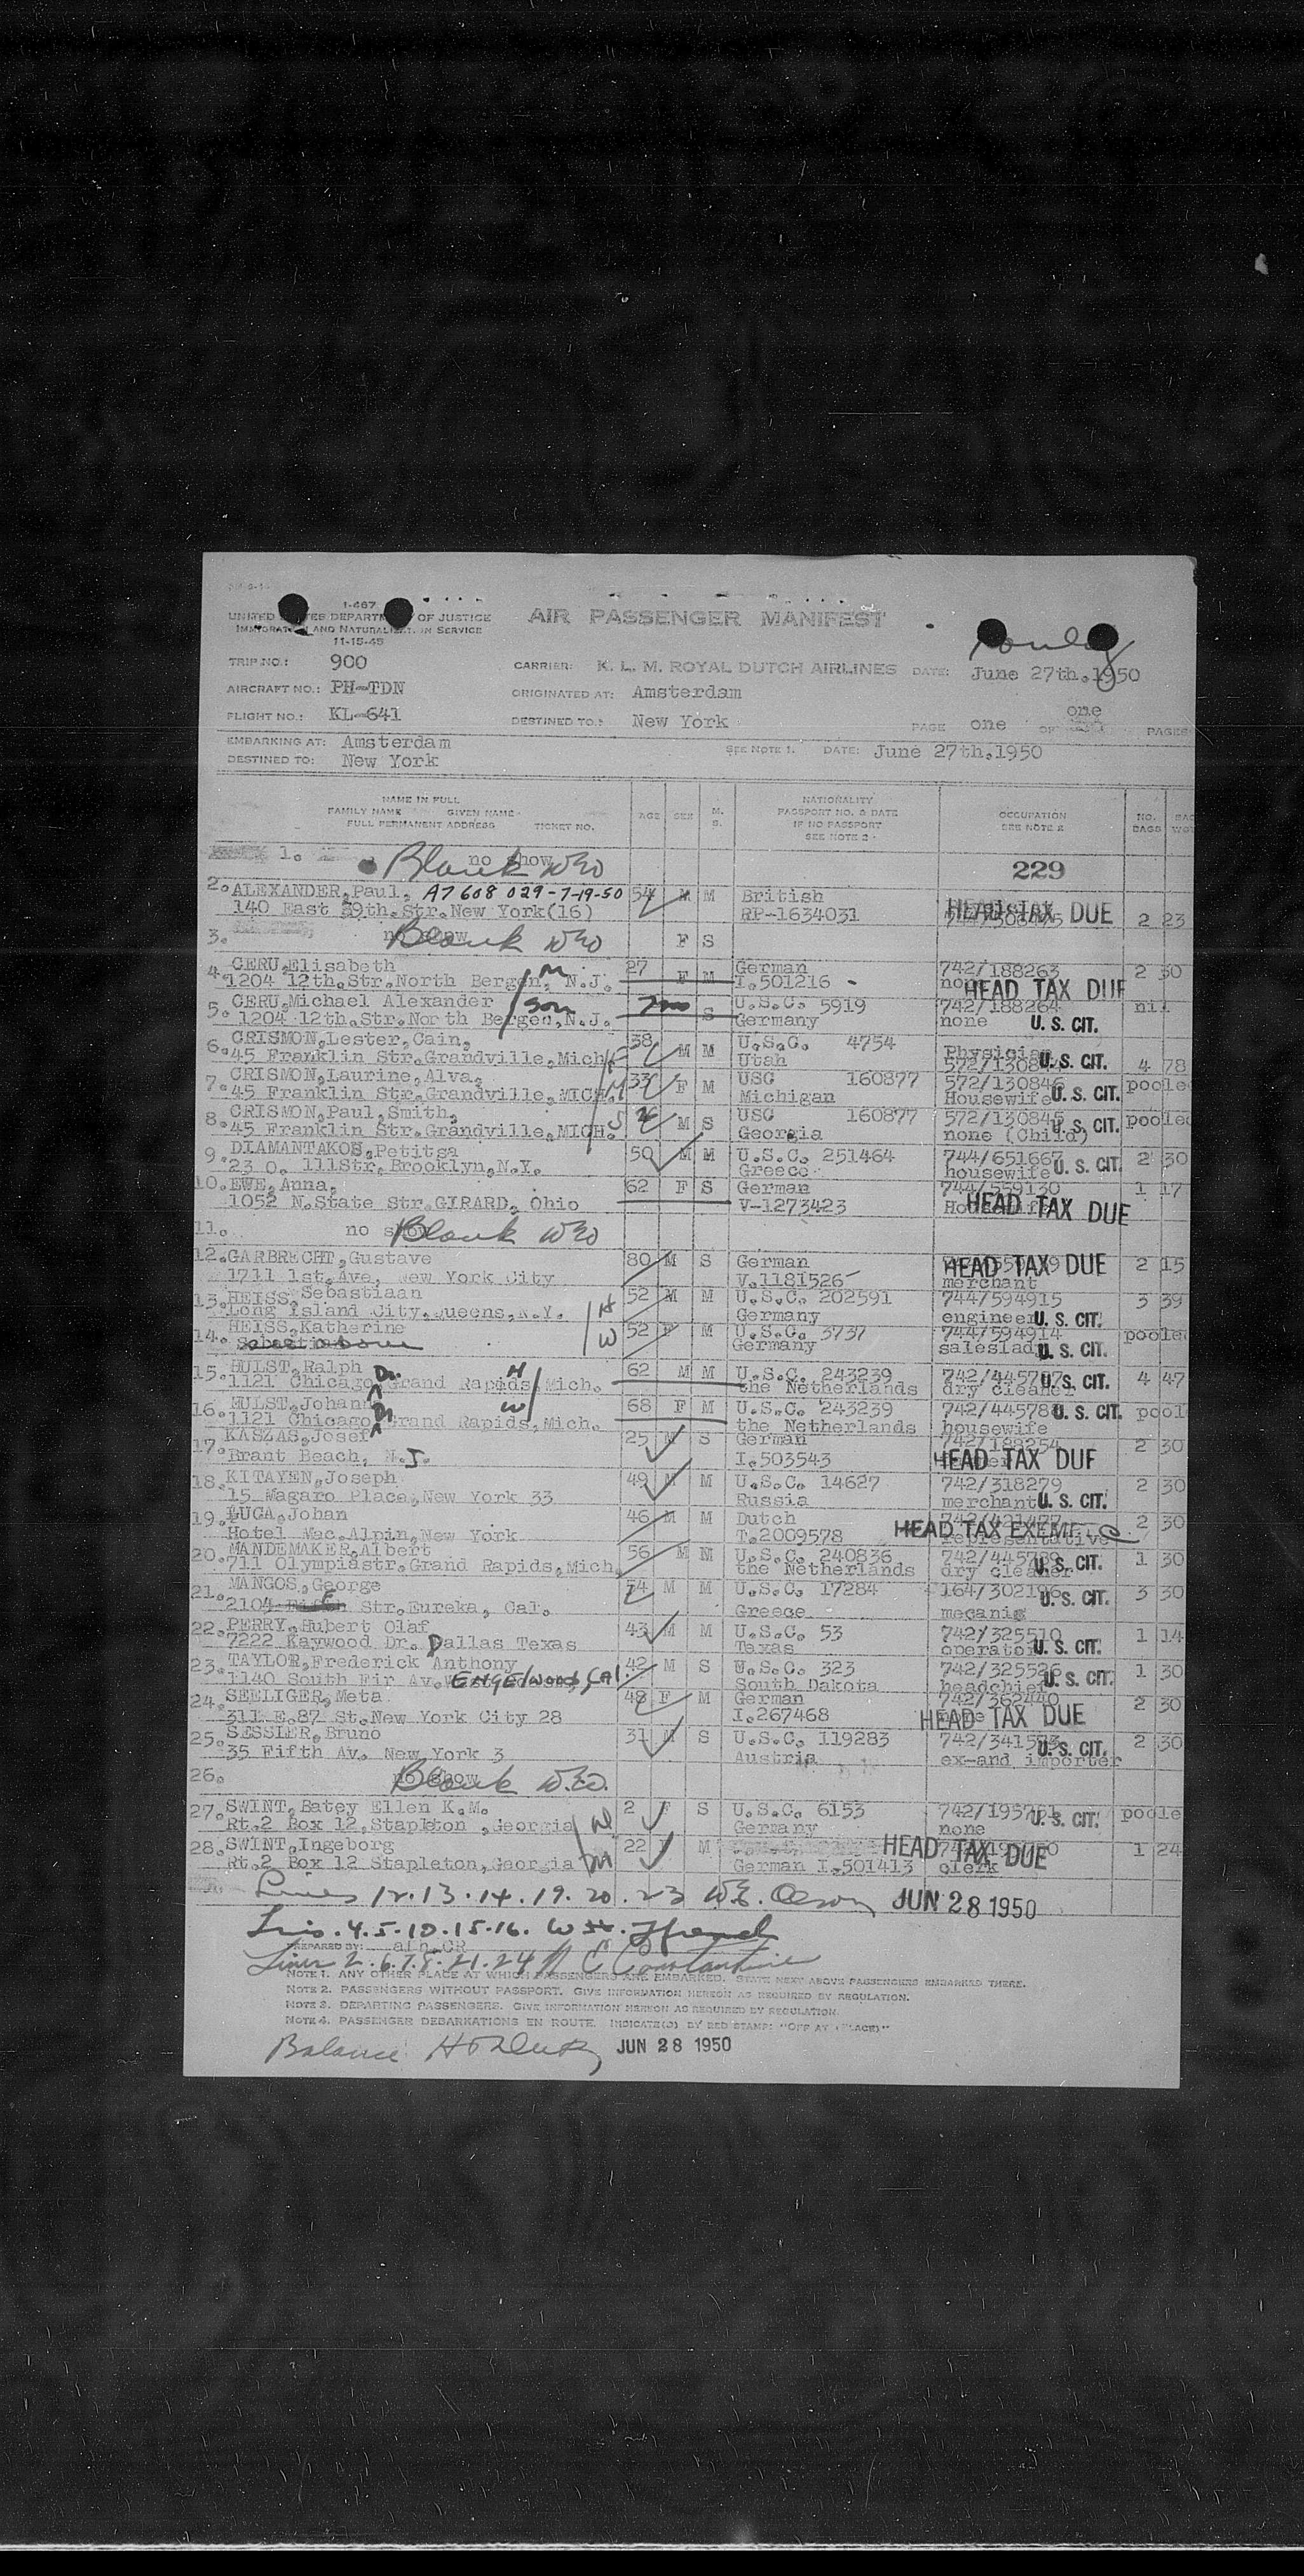 1-467
UNITED STATES DEPARTMENT OF JUSTICE
IMMIGRATION AND NATURALIZATION SERVICE
11-15-45
AIR PASSENGER MANIFEST
TRIP NO.: 900
CARRIER: K. L. M. ROYAL DUTCH AIRLINES DATE: June 27th.1950
AIRCRAFT NO.: PH-TDN
ORIGINATED AT: Amsterdam
FLIGHT NO.: KL-641
DESTINED TO: New York
PAGE one OF one PAGES
EMBARKING AT: Amsterdam
SEE NOTE 1. DATE: June 27th.1950
DESTINED TO: New York
NAME IN FULL
FAMILY NAME GIVEN NAME
FULL PERMANENT ADDRESS TICKET NO.
AGE SEX M. S.
NATIONALITY
PASSPORT NO. & DATE
IF NO PASSPORT
SEE NOTE 2
OCCUPATION
SEE NOTE 2
NO. BAGS
1. no show Blank WEO 229
2. ALEXANDER, Paul, A7 608 029-7-19-50 54 M M British
140 East 39th.Str.New York(16) RP-1634031 HEAD TAX DUE 2 23
3. no show Blank WEO F S
4. CERU,Elisabeth 27 F M German 742/188263 2 30
1204 12th.Str.North Bergen, N.J. M I.501216 HEAD TAX DUE
5. CERU,Michael Alexander son S U.S.C. 5919 742/188264 nil
1204 12th.Str.North Bergen,N.J. Germany none U. S. CIT.
6. CRISMON,Lester,Cain, 38 M M U.S.C. 4754 Physician
45 Franklin Str.Grandville,Mich Utah U. S. CIT. 4 78
7. CRISMON,Laurine,Alva, 33 F M USC 160877 572/130846 pooled
45 Franklin Str.Grandville,MICH. Michigan Housewife U. S. CIT.
8. CRISMON,Paul,Smith, M S USC 160877 572/130845 pooled
45 Franklin Str.Grandville,MICH. S Georgia none (Child) U. S. CIT.
9. DIAMANTAKOS,Petitsa 50 M M U.S.C. 251464 744/651667 2 30
23 O. 111Str.Brooklyn,N.Y. Greece housewife U. S. CIT.
10. EWE, Anna, 62 F S German 744/559130 1 17
1052 N.State Str.GIRARD, Ohio V-1273423 HEAD TAX DUE
11. no show Blank WEO
12. GARBRECHT,Gustave 80 M S German HEAD TAX DUE 2 15
1711 1st.Ave, New York City V.1181526 merchant
13. HEISS, Sebastiaan 52 M M U.S.C. 202591 744/594915 3 39
Long Island City.Queens,N.Y. H Germany engineer U. S. CIT.
14. HEISS,Katherine 52 F M U.S.C. 3737 744/594914 pooled
W Germany saleslady U. S. CIT.
15. HULST,Ralph H 62 M M U.S.C. 243239 4 47
1121 Chicago Dr. Grand Rapids,Mich. the Netherlands dry cleaner U. S. CIT.
16. HULST,Johanna W 68 F M U.S.C. 243239 pooled
1121 Chicago Dr Grand Rapids,Mich. the Netherlands housewife U. S. CIT.
17. KASZAS,Josef 25 M S German 742/188254 2 30
Brant Beach, N.J. I.503543 HEAD TAX DUE
18. KITAYEN,Joseph 49 M M U.S.C. 14627 742/318279 2 30
15 Magaro Place,New York 33 Russia merchant U. S. CIT.
19. LUGA,Johan 46 M M Dutch 2 30
Hotel Mac.Alpin,New York T.2009578 HEAD TAX EXEMPT representative
20. MANDEMAKER,Albert 56 M M U.S.C. 240836 1 30
711 Olympiastr.Grand Rapids,Mich the Netherlands dry cleaner U. S. CIT.
21. MANGOS,George M M U.S.C. 17284 3 30
2104 Str.Eureka, Cal. Greece mecanic U. S. CIT.
22. PERRY,Hubert Olaf 43 M M U.S.C. 53 742/325510 1 14
7222 Kaywood Dr. Dallas Texas Texas operator U. S. CIT.
23. TAYLOR,Frederick Anthony 42 M S U.S.C. 323 1 30
1140 South Fir Av. ENGElWOOD, CAl. South Dakota U. S. CIT.
24. SEELIGER,Meta 48 F M German 742/362440 2 30
311 E.87 St.New York City 28 I.267468 HEAD TAX DUE
25. SESSLER,Bruno 31 M S U.S.C. 119283 2 30
35 Fifth Av. New York 3 Austria ex-and importer U. S. CIT.
26. no show Blank W.E.O.
27. SWINT,Batey Ellen K.M. 2 F S U.S.C. 6153 pooled
Rt.2 Box 12,Stapleton ,Georgia Germany none U. S. CIT.
28. SWINT,Ingeborg 22 M HEAD TAX DUE 1 24
Rt.2 Box 12 Stapleton,Georgia German I.501413 clerk
Lines 12.13.14.19.20.23 W.E. Olson JUN 28 1950
Lns. 4.5-10.15-16.
PREPARED BY:
Lines 2.6.7.8.21.24 Constantine
NOTE 1. ANY OTHER PLACE AT WHICH PASSENGERS ARE EMBARKED. STATE NEXT ABOVE PASSENGERS EMBARKED THERE.
NOTE 2. PASSENGERS WITHOUT PASSPORT. GIVE INFORMATION HEREON AS REQUIRED BY REGULATION.
NOTE 3. DEPARTING PASSENGERS. GIVE INFORMATION HEREON AS REQUIRED BY REGULATION.
NOTE 4. PASSENGER DEBARKATIONS EN ROUTE. INDICATE(D) BY RED STAMP: "OFF AT (PLACE)"
Balance JUN 28 1950